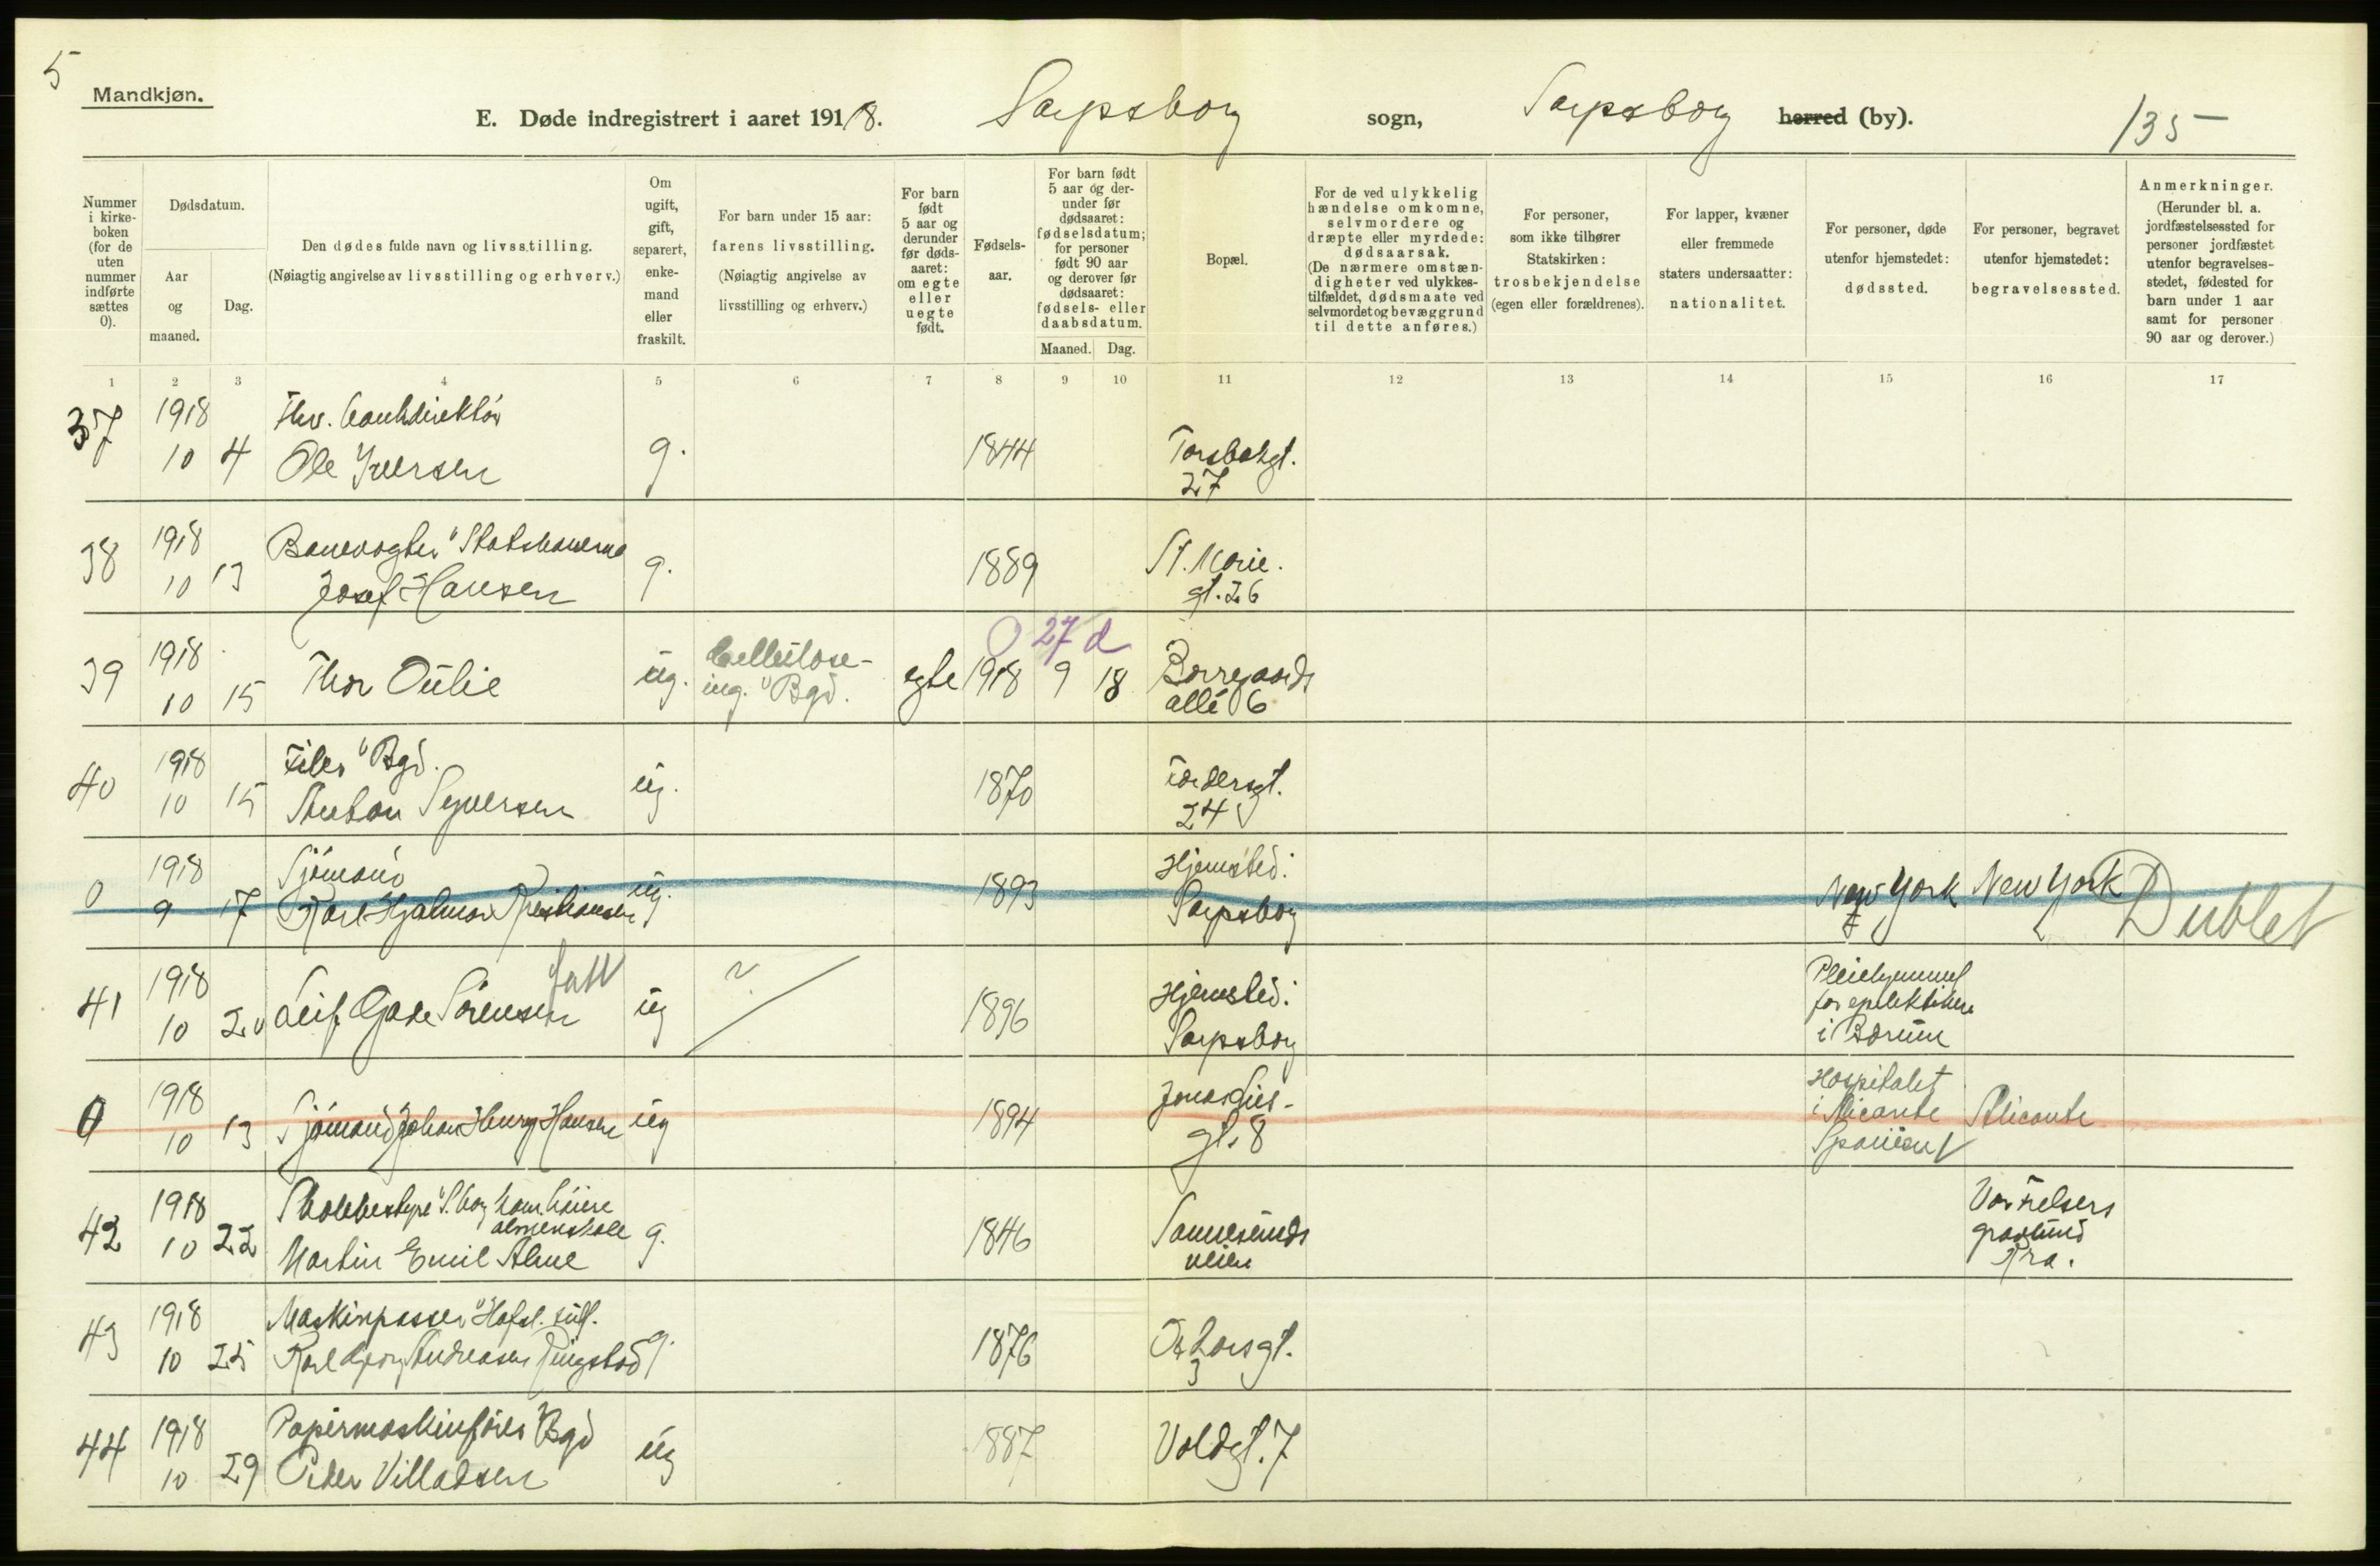 5
Mandkjøn.
E. Døde indregistrert i aaret 1918. Sarpsborg sogn, Sarpsborg herred (by). 135
Nummer i kirke-boken (for de uten nummer indførte sættes 0).
Dødsdatum.
Aar og maaned.
Dag.
Den dødes fulde navn og livsstilling.
(Nøiagtig angivelse av livsstilling og erhverv.)
Om ugift, gift, separert, enke-mand eller fraskilt.
For barn under 15 aar: farens livsstilling.
(Nøiagtig angivelse av livsstilling og erhverv.)
For barn født 5 aar og derunder før døds-aaret: om egte eller uegte født.
Fødsels-aar.
For barn født 5 aar og der-under før dødsaaret: fødselsdatum; for personer født 90 aar og derover før dødsaaret: fødsels- eller daabsdatum.
Maaned. Dag.
Bopæl.
For de ved ulykkelig hændelse omkomne, selvmordere og dræpte eller myrdede: dødsaarsak.
(De nærmere omstæn-digheter ved ulykkes-tilfældet, dødsmaate ved selvmordet og bevæggrund til dette anføres.)
For personer, som ikke tilhører Statskirken: trosbekjendelse (egen eller forældrenes).
For lapper, kvæner eller fremmede staters undersaatter: nationalitet.
For personer, døde utenfor hjemstedet: dødssted.
For personer, begravet utenfor hjemstedet: begravelsessted.
Anmerkninger.
(Herunder bl. a. jordfæstelsessted for personer jordfæstet utenfor begravelses-stedet, fødested for barn under 1 aar samt for personer 90 aar og derover.)
1 2 3 4 5 6 7 8 9 10 11 12 13 14 15 16 17
37 1918 Fhv. bankdirektør
10 4 Ole Iversen g. 1844 Torsbekgt.
27
38 1918 Banevogter v/ Statsbanerne
10 13 Josef Hansen g. 1889 St. Marie.
gt. 26
0 27 d
39 1918 Thor Oulie ug. Cellulose-
10 15 ing. v/ Bgd. egte 1918 9 18 Borregaards
allé 6
40 1918 Filer v/ Bgd.
10 15 Anton Syversen ug. 1870
24
0 1918 Sjømand Hjemsted:
9 17 Karl Hjalmar Kristiansen ug. 1893 Sarpsborg New York New York Dublet
41 1918 Leif Gade Sørensen ug ? 1896 Hjemsted:
10 20 Sarpsborg Pleiehjemmet
for epilektikere
i Bærum
0 1918 Sjømand Johan Henry Hansen ug 1894 Jonas Lies-
10 13 gt. 8 Hospitalet
i Alicante Alicante
Spanien
42 1918 Skolebestyrer v/ S.borg kom. høiere
almenskole
10 22 Martin Emil Alme g. 1846 Sannesunds
veien Vor Frelsers
gravlund
Kra.
43 1918 Maskinpasser v/ Hafsl. sulf.
10 25 Karl Georg Andreasen Ringstad g. 1876
3
44 1918 Papirmaskinfører v/ Bgd
10 29 Peder Villadsen ug 1887 Voldgt. 7